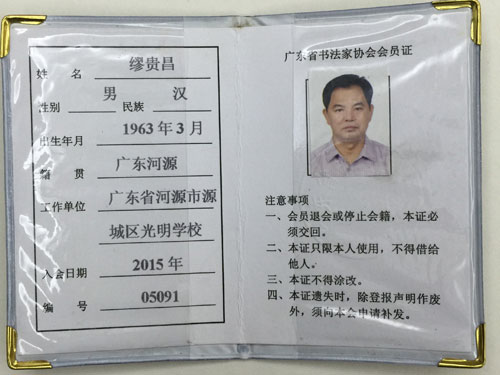 姓 名 缪贵昌
性别 男 民族 汉
出生年月 1963年3月
籍 贯 广东河源
工作单位 广东省河源市源
城区光明学校
入会日期 2015年
编 号 05091
广东省书法家协会会员证
注意事项
一、会员退会或停止会籍，本证必
须交回。
二、本证只限本人使用，不得借给
他人。
三、本证不得涂改。
四、本证遗失时，除登报声明作废
外，须向本会申请补发。